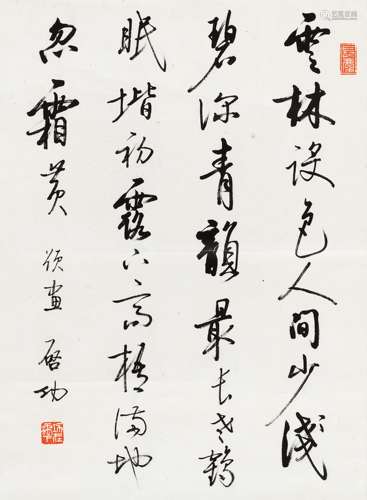 雲林設色人間少淺
碧深青韻最長老鶴
眠堦初露下高梧滿地
忽霜黄 題畫 啓功